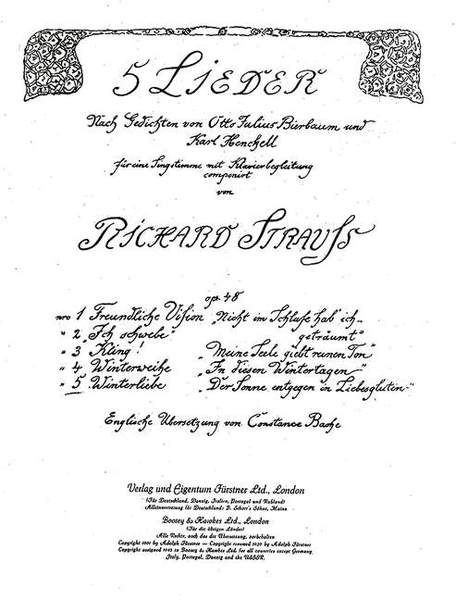 5 LIEDER
Nach Gedichten von Otto Julius Bierbaum und
Karl Henckell
für eine Singstimme mit Klavierbegleitung
componirt
von
RICHARD STRAUSS
op. 48
nro 1 Freundliche Vision „Nicht im Schlafe hab ich
geträumt"
" 2 „Ich schwebe"
" 3 Kling! „Meine Seele giebt reinen Ton"
" 4 Winterweihe „In diesen Wintertagen"
" 5 Winterliebe „Der Sonne entgegen in Liebesgluten-"
Englische Übersetzung von Constance Bache
Verlag und Eigentum Fürstner Ltd., London
(Für Deutschland, Danzig, Italien, Portugal und Rußland)
Alleinvertretung für Deutschland: B. Schott's Söhne, Mainz
Boosey & Hawkes Ltd., London
(Für die übrigen Länder)
Alle Rechte, auch das der Übersetzung, vorbehalten
Copyright 1901 by Adolph Fürstner — Copyright renewed 1929 by Adolph Fürstner
Copyright assigned 1943 to Boosey & Hawkes Ltd. for all countries except Germany,
Italy, Portugal, Danzig and the USSR.